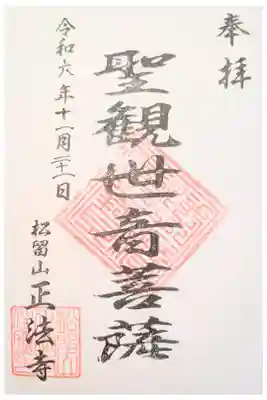 奉拝
聖観世音菩薩
令和六年十一月二十一日
松留山
正法寺